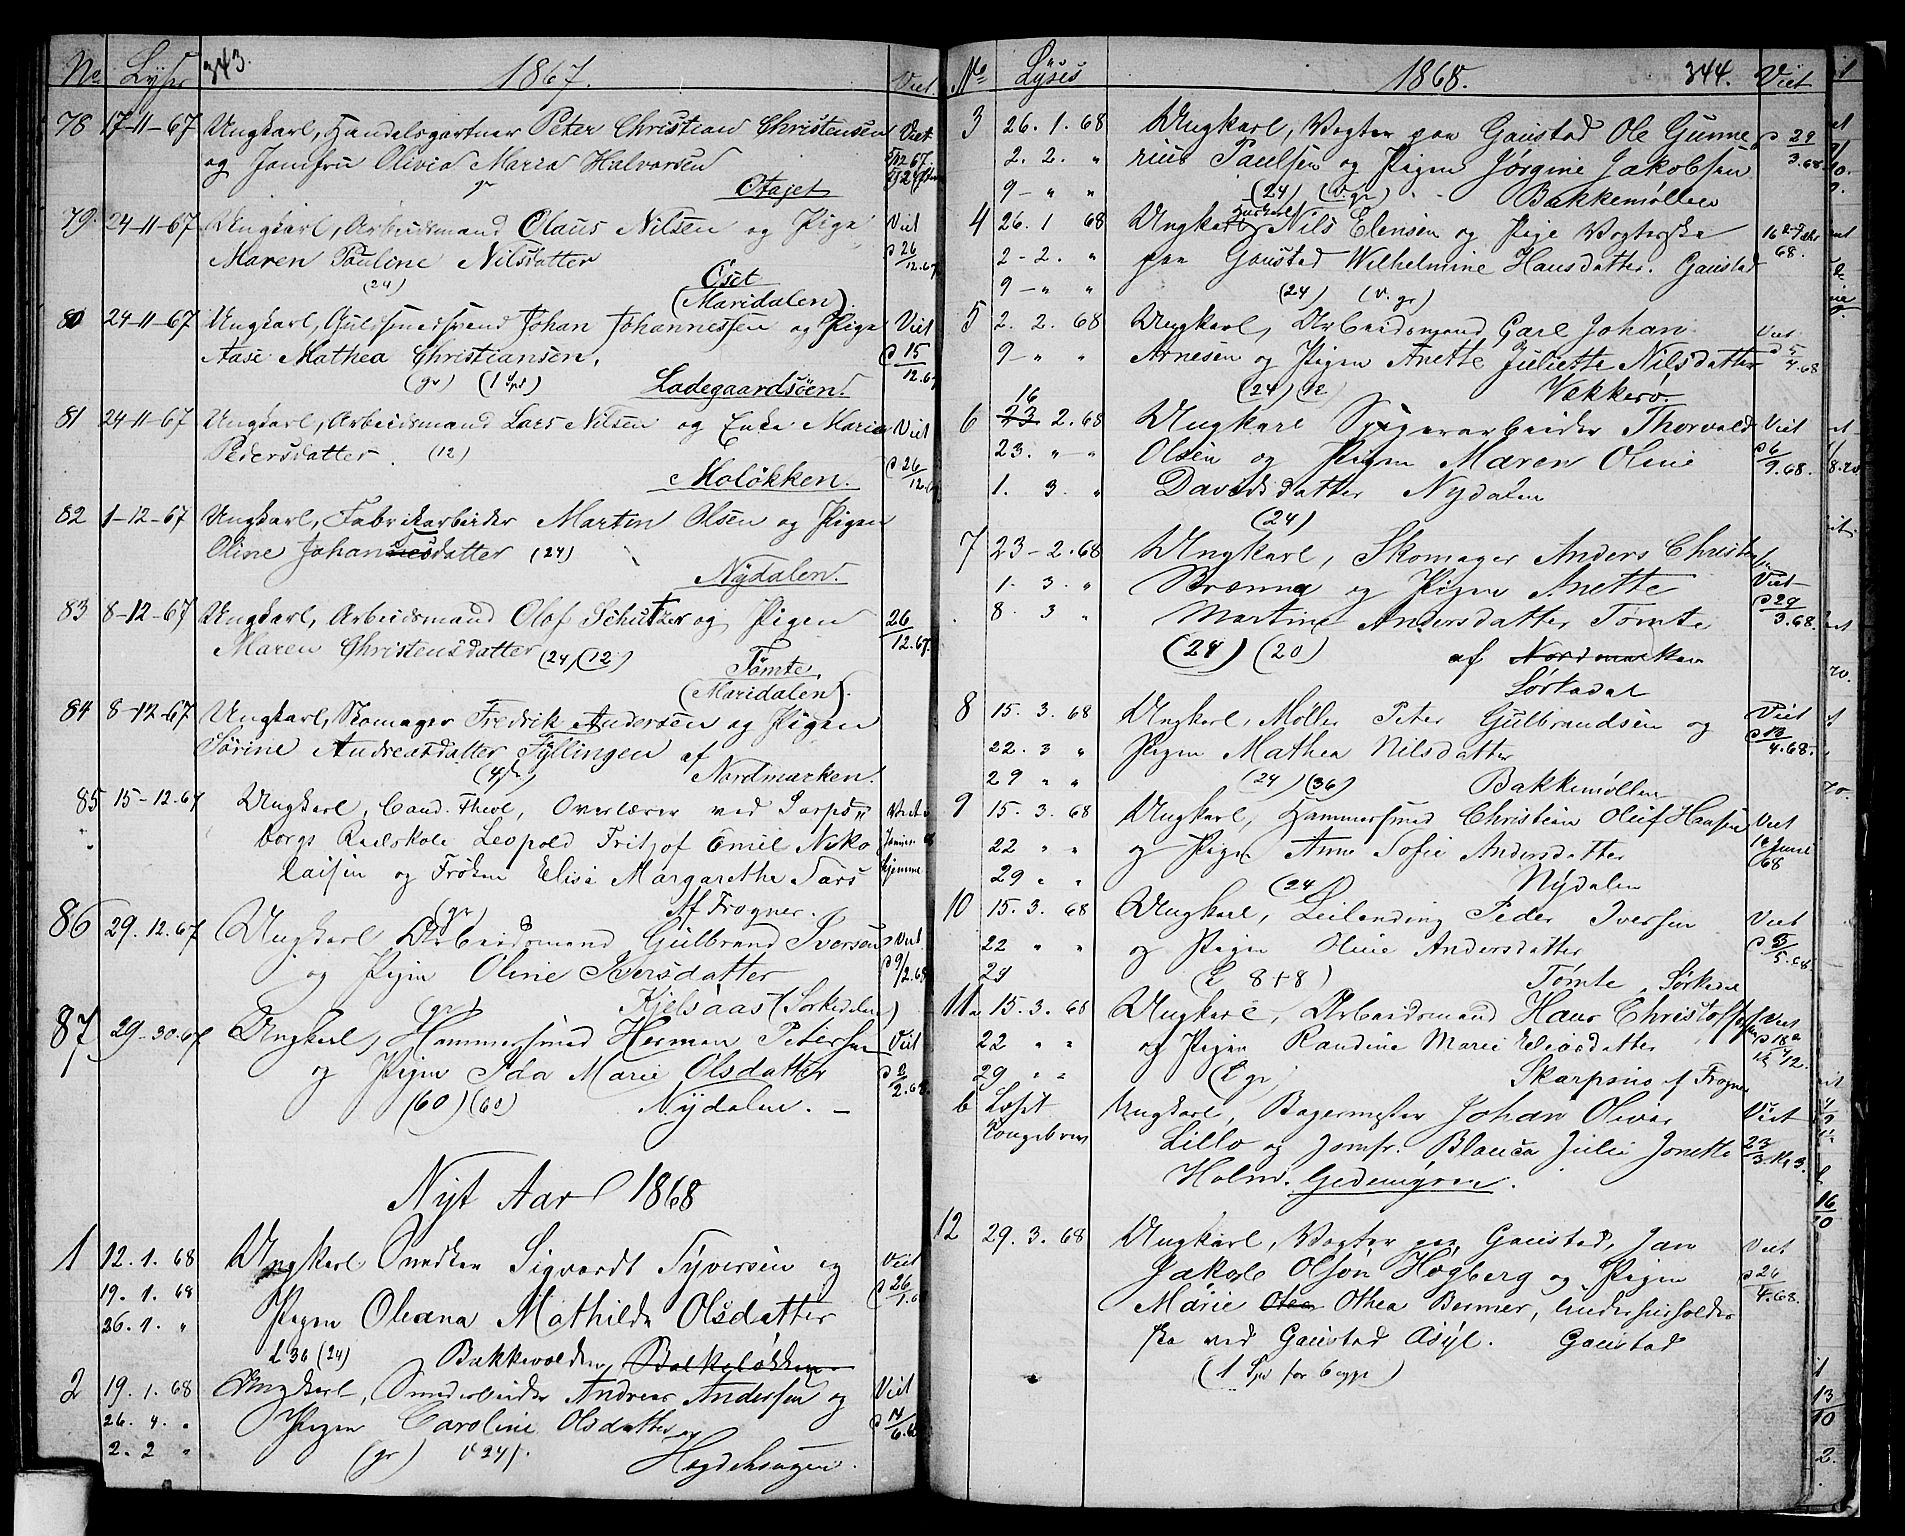 No Lyser 343. 1867. Viet
78 17-11-67 Ungkarl, Handelsgartner Peter Christian Christensen Viet
og Jomfru Olivia Maria Halvorsen
gr
79 24-11-67 Ungkarl, Arbeidsmand Olaus Nilsen og Pige Viet
Maren Pauline Nilsdatter 26/12.67
(24) Oset
(Maridalen).
80 24-11-67 Ungkarl, Guldsmedsvend Johan Johannessen og Pige Viet
Aase Mathea Christiansen, 15/12.67
(gr) (1 Spd) Ladegaardsöen.
81 24-11-67 Ungkarl, Arbeidsmand Lars Nilsen og Enke Maria Viet
Pedersdatter. (12) 26/12.67
Moløkken.
82 1-12-67 Ungkarl, Fabrikarbeider Martin Olsen og Pigen
Oline Johannesdatter (24)
Nydalen.
83 8-12-67 Ungkarl, Arbeidsmand Olof Schutzer og Pigen 26/12.67.
Maren Christensdatter (24) (12)
Tömte
(Maridalen).
84 8-12-67 Ungkarl, Skomager Fredrik Andersen og Pigen
Sørine Andreasdatter Fyllingen af
Nordmarken.
85 15-12-67 Ungkarl, Cand. Theol, Overlærer ved Sarps
borgs Realskole Leopold Fritjof Emil Niko
laisen og Frøken Elise Margarethe Sars hjemme
(gr) Af Frogner.
86 29.12.67 Ungkarl Arbeidsmand Gulbrand Iversen Viet
og Pigen Oline Iversdatter 9/2.68
(gr) Kjelsaas (Sorkedalen)
87 29-30-67 Ungkarl, Hammersmed Herman Petersen Viet
og Pigen Ida Marie Olsdatter 2/2.68
(60) (60) Nydalen. —
Nyt Aar 1868
1 12.1.68 Ungkarl Snedker Sigvardt Syversen og Viet
19.1.68 Pigen Oleana Mathilde Olsdatter 26/1.68
26.1. "
L 36 (24) Bakkevolden, Bakkeløkken
2 19.1.68 Ungkarl, Andreas Andersen og Viet
26.4. " Pigen Caroline Olsdatter
2.2 " (gr) (24).
No Lyses 1868. 344. Viet
3 26.1.68 Ungkarl, Vogter paa Gaustad Ole Gunne 29/3.68
2.2. " rius Paulsen og Pigen Jørgine Jakobsen
9 - " " (24) (v. gr) Bakkemøllen
4 26.1 68 Ungkarl Nils Elensen og Pige Vogterske
2-2. " paa Gaustad Wilhelmine Hansdatter. Gaustad 68.
9 - " " (24) (v. gr)
5 2. 2. 68 Ungkarl, Arbeidsmand Carl Johan Viet
9 - " " Arnesen og Pigen Anette Juliette Nilsdatter 5/4.68
(24) Vækkerø.
16
6 23 2.68 Ungkarl Spigerarbeider Thorvald Viet
23. " - " Olsen og Pigen Maren Oline 6/9.68.
1. 3. " Davidsdatter Nydalen
(24)
7 23-2.68 Ungkarl, Skomager Anders Christen
1. 3. " Brænna og Pigen Anette Viet
8. 3 " Martine Andersdatter Tömte 29/3.68.
(24) (20) af Nordmarken
Sørkedal
8 15.3.68 Ungkarl, Møller Peter Gulbrandsen og Viet
22.3 " Pigen Mathea Nilsdatter 13/4.68.
29 " " (24) (36) Bakkemøllen
9 15.3.68 Ungkarl, Hammersmed Christian Oluf Hansen Viet
22 " " og Pigen Anne Sofie Andersdatter 1 Juni
29 " " (24 Nydalen 68
10 15.3.68 Ungkarl, Leilending Peder Iversen Viet
22 " " og Pigen Oline Andersdatter 3/5.68
29 (L 8+8) Tømte, Sørkedal
11a 15.3.68 Ungkarl, Arbeidsmand Hans Christoffersen Viet
22 " " og Pigen Randine Marie Eliasdatter
29 " " (L gr) Skarpsno af Frogner
b Løst Ungkarl, Bagermester Johan Oliver Viet
Kongebrev Lillo og Jomfr. Blanca Julie Jonette 23/3
Holm. Gedemyren.
12 29.3.68 Ungkarl, Vogter paa Gaustad, Jan Viet
Jakob Olson Høgberg og Pigen 26/4.68.
Marie Otea Othea Bermer, Underhusholder
ske ved Gaustad Asyl. Gaustad
(1 Spd for begge)